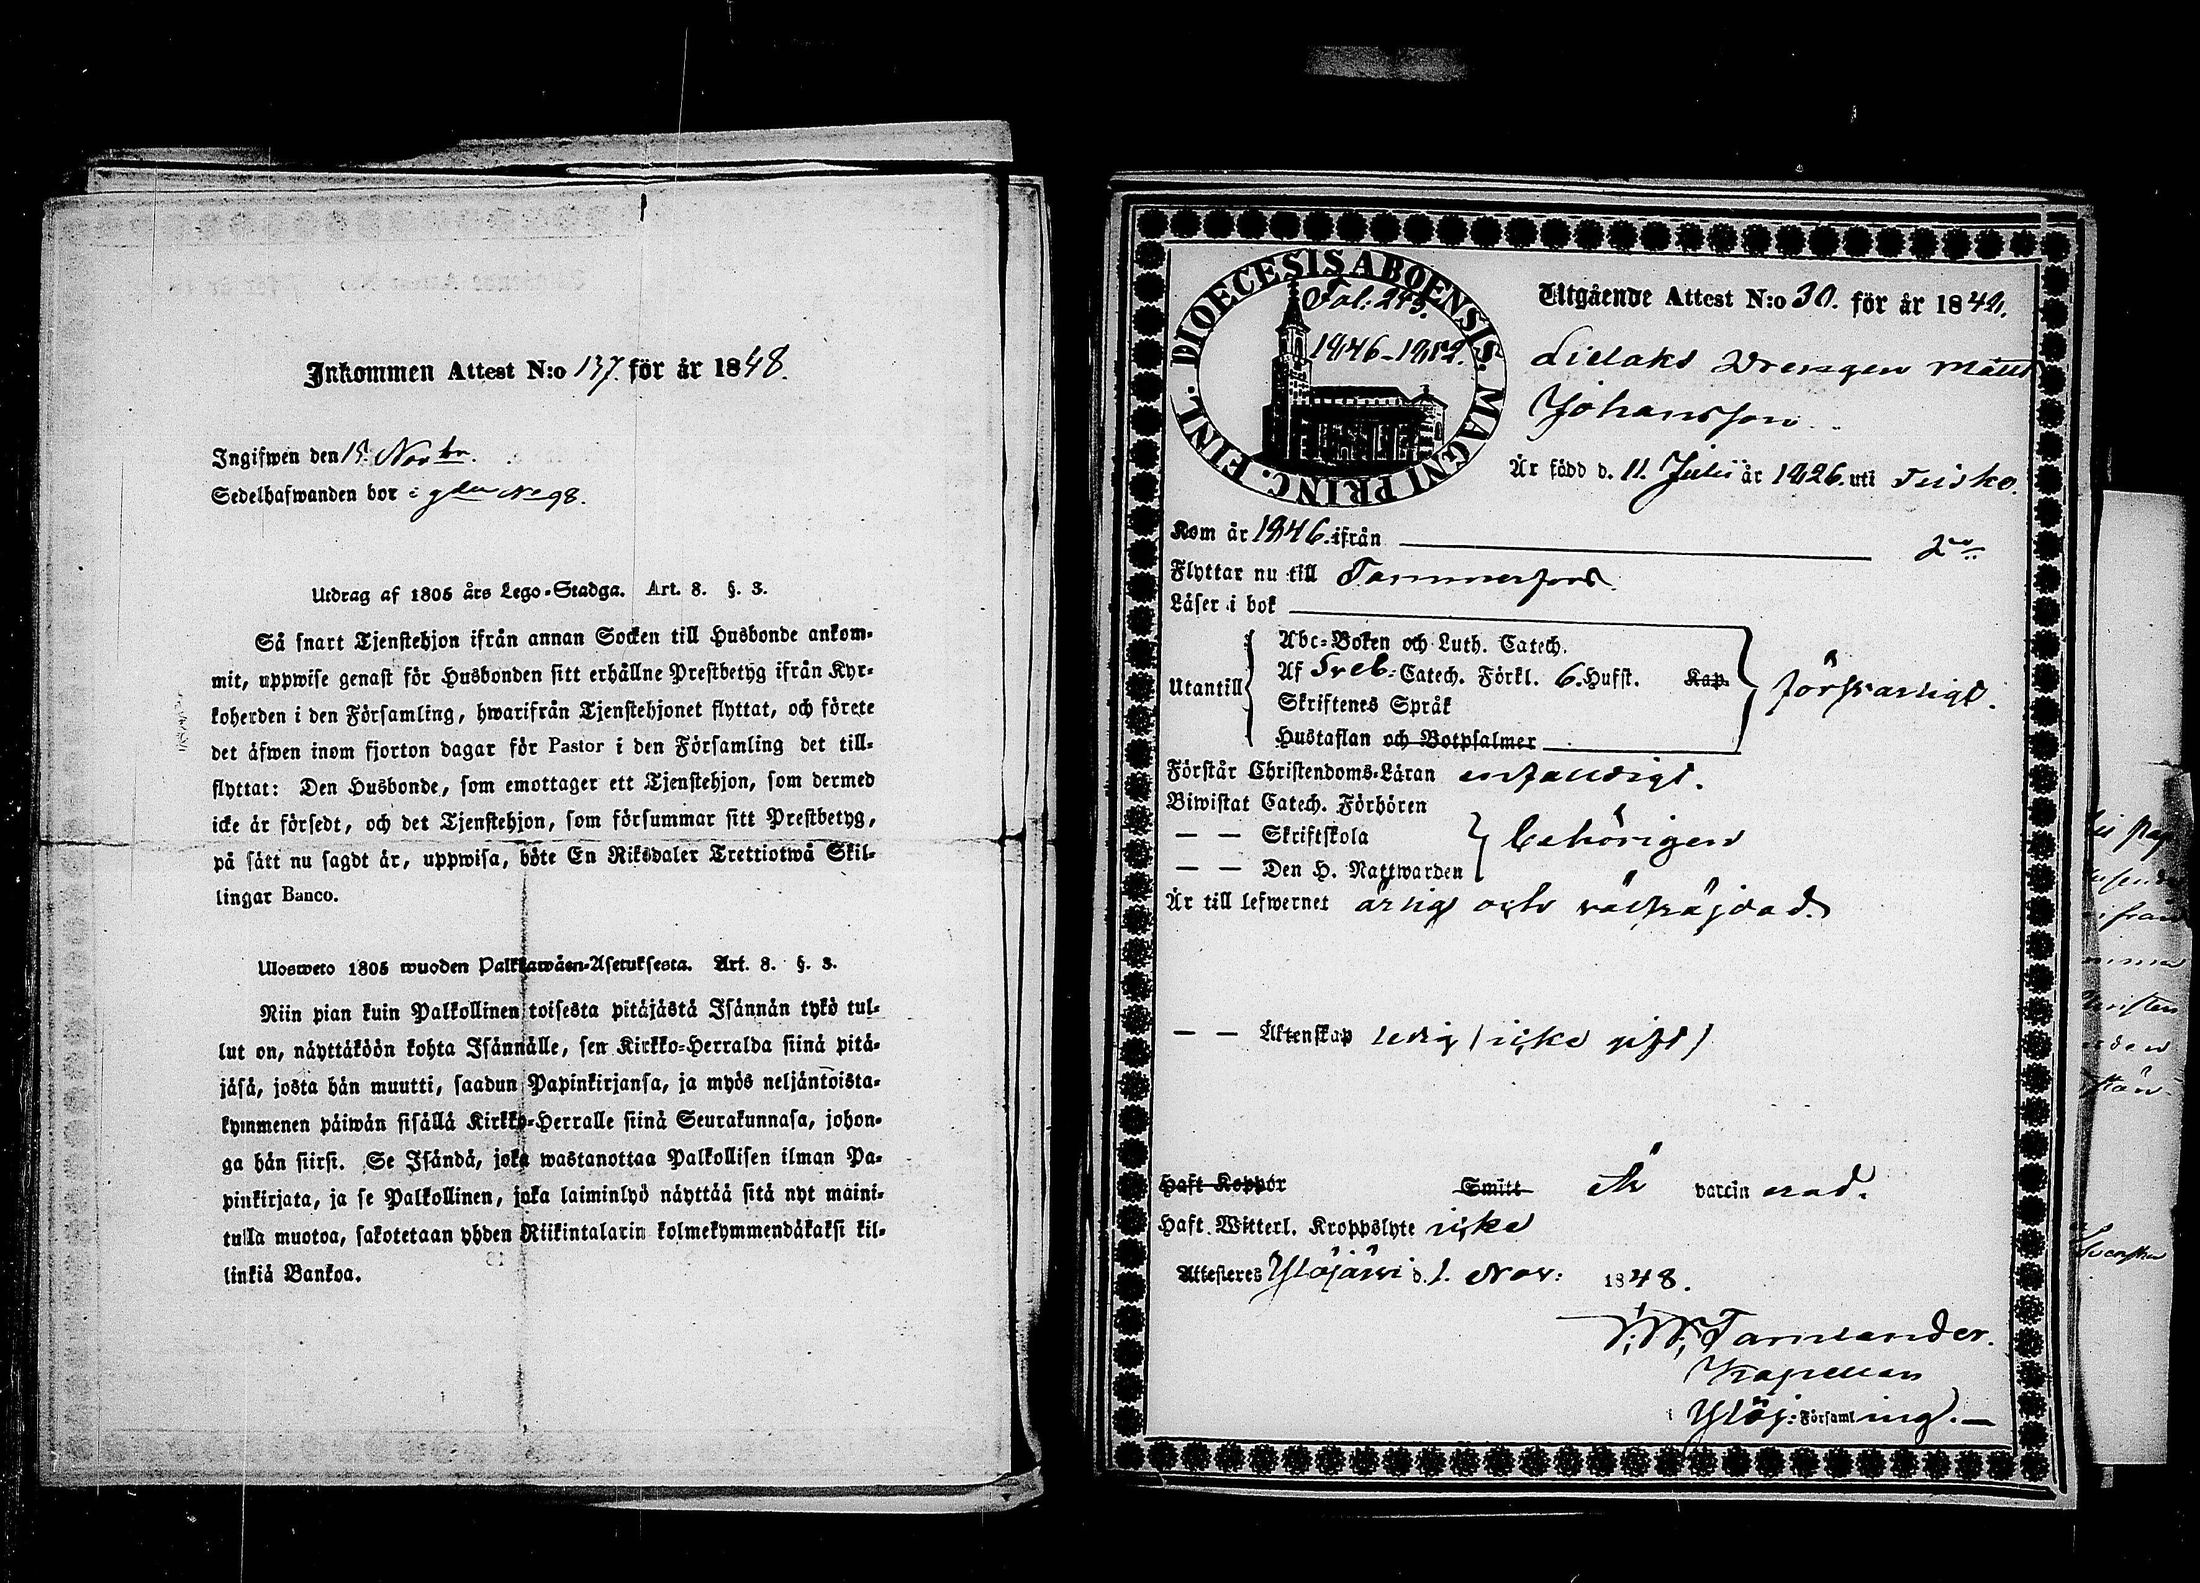 Inkommen Attest N:o 137. för år 1848.
Ingifwen den 15. Novbr.
Sedelhafwanden bor i gden No 98.
Utdrag af 1805 års Lego-Stadga. Art. 8. §. 3.
Så snart Tjenstehjon ifrån annan Socken till Husbonde ankom-
mit, uppwise genast för Husbonden sitt erhållne Prestbetyg ifrån Kyr-
koherden i den Församling, hwarifrån Tjenstehjonet flyttat, och förete
det äfwen inom fjorton dagar för Pastor i den Församling det till-
flyttat: Den Husbonde, som emottager ett Tjenstehjon, som dermed
icke är försedt, och det Tjenstehjon, som försummar sitt Prestbetyg,
på sätt nu sagdt är, uppwisa, böte En Riksdaler Trettiotwå Skil-
lingar Banco.
Ulosweto 1805 wuoden Palkkawäen-Asetuksesta. Art. 8. §. 3.
Niin pian kuin Palkollinen toisesta pitäjästä Isännän tykö tul-
lut on, näyttäköön kohta Isännälle, sen Kirkko-Herralda siinä pitä-
jäsä, josta hän muutti, saadun Papinkirjansa, ja myös neljäntoista-
kymmenen päiwän sisällä Kirkko-Herralle siinä Seurakunnasa, johon-
ga hän siirsi. Se Isändä, joka wastanottaa Palkollisen ilman Pa-
pinkirjata, ja se Palkollinen, joka laiminlyö näyttää sitä nyt maini-
tulla muotoa, sakotetaan yhden Riikintalarin kolmekymmendäkaksi kil-
linkiä Bankoa.
DIOECESIS ABOENSIS. MAGNI PRINC. FINL.
Fol. 243.
1846-1852.
Utgående Attest N:o 30. för år 1848.
Lielaks Drengen Matts
Johansson.
Är född d. 11. Julii år 1826. uti Teisko.
Kom år 1846. ifrån
Flyttar nu till Tammerfors.
Läser i bok
Utantill
Abc-Boken och Luth. Catech.
Af Sveb: Catech. Förkl. 6. Hufst. Kap.
Skriftenes Språk
Hustaflan och Botpsalmer
försvarligt.
Förstår Christendoms-Läran enfaldigt.
Biwistat Catech. Förhören
— — Skriftskola
— — Den H. Nattwarden
behörigen
Är till lefwernet ärlig och välfräjdad.
— — Äktenskap ledig (icke gift)
Haft Koppor Smitt Är vaccinerad.
Haft Witterl. Kroppslyte icke
Attesteres Ylöjärvi d. 1. Nov: 1848.
Tamlander.
Kapellan
Ylöj: Församling.—